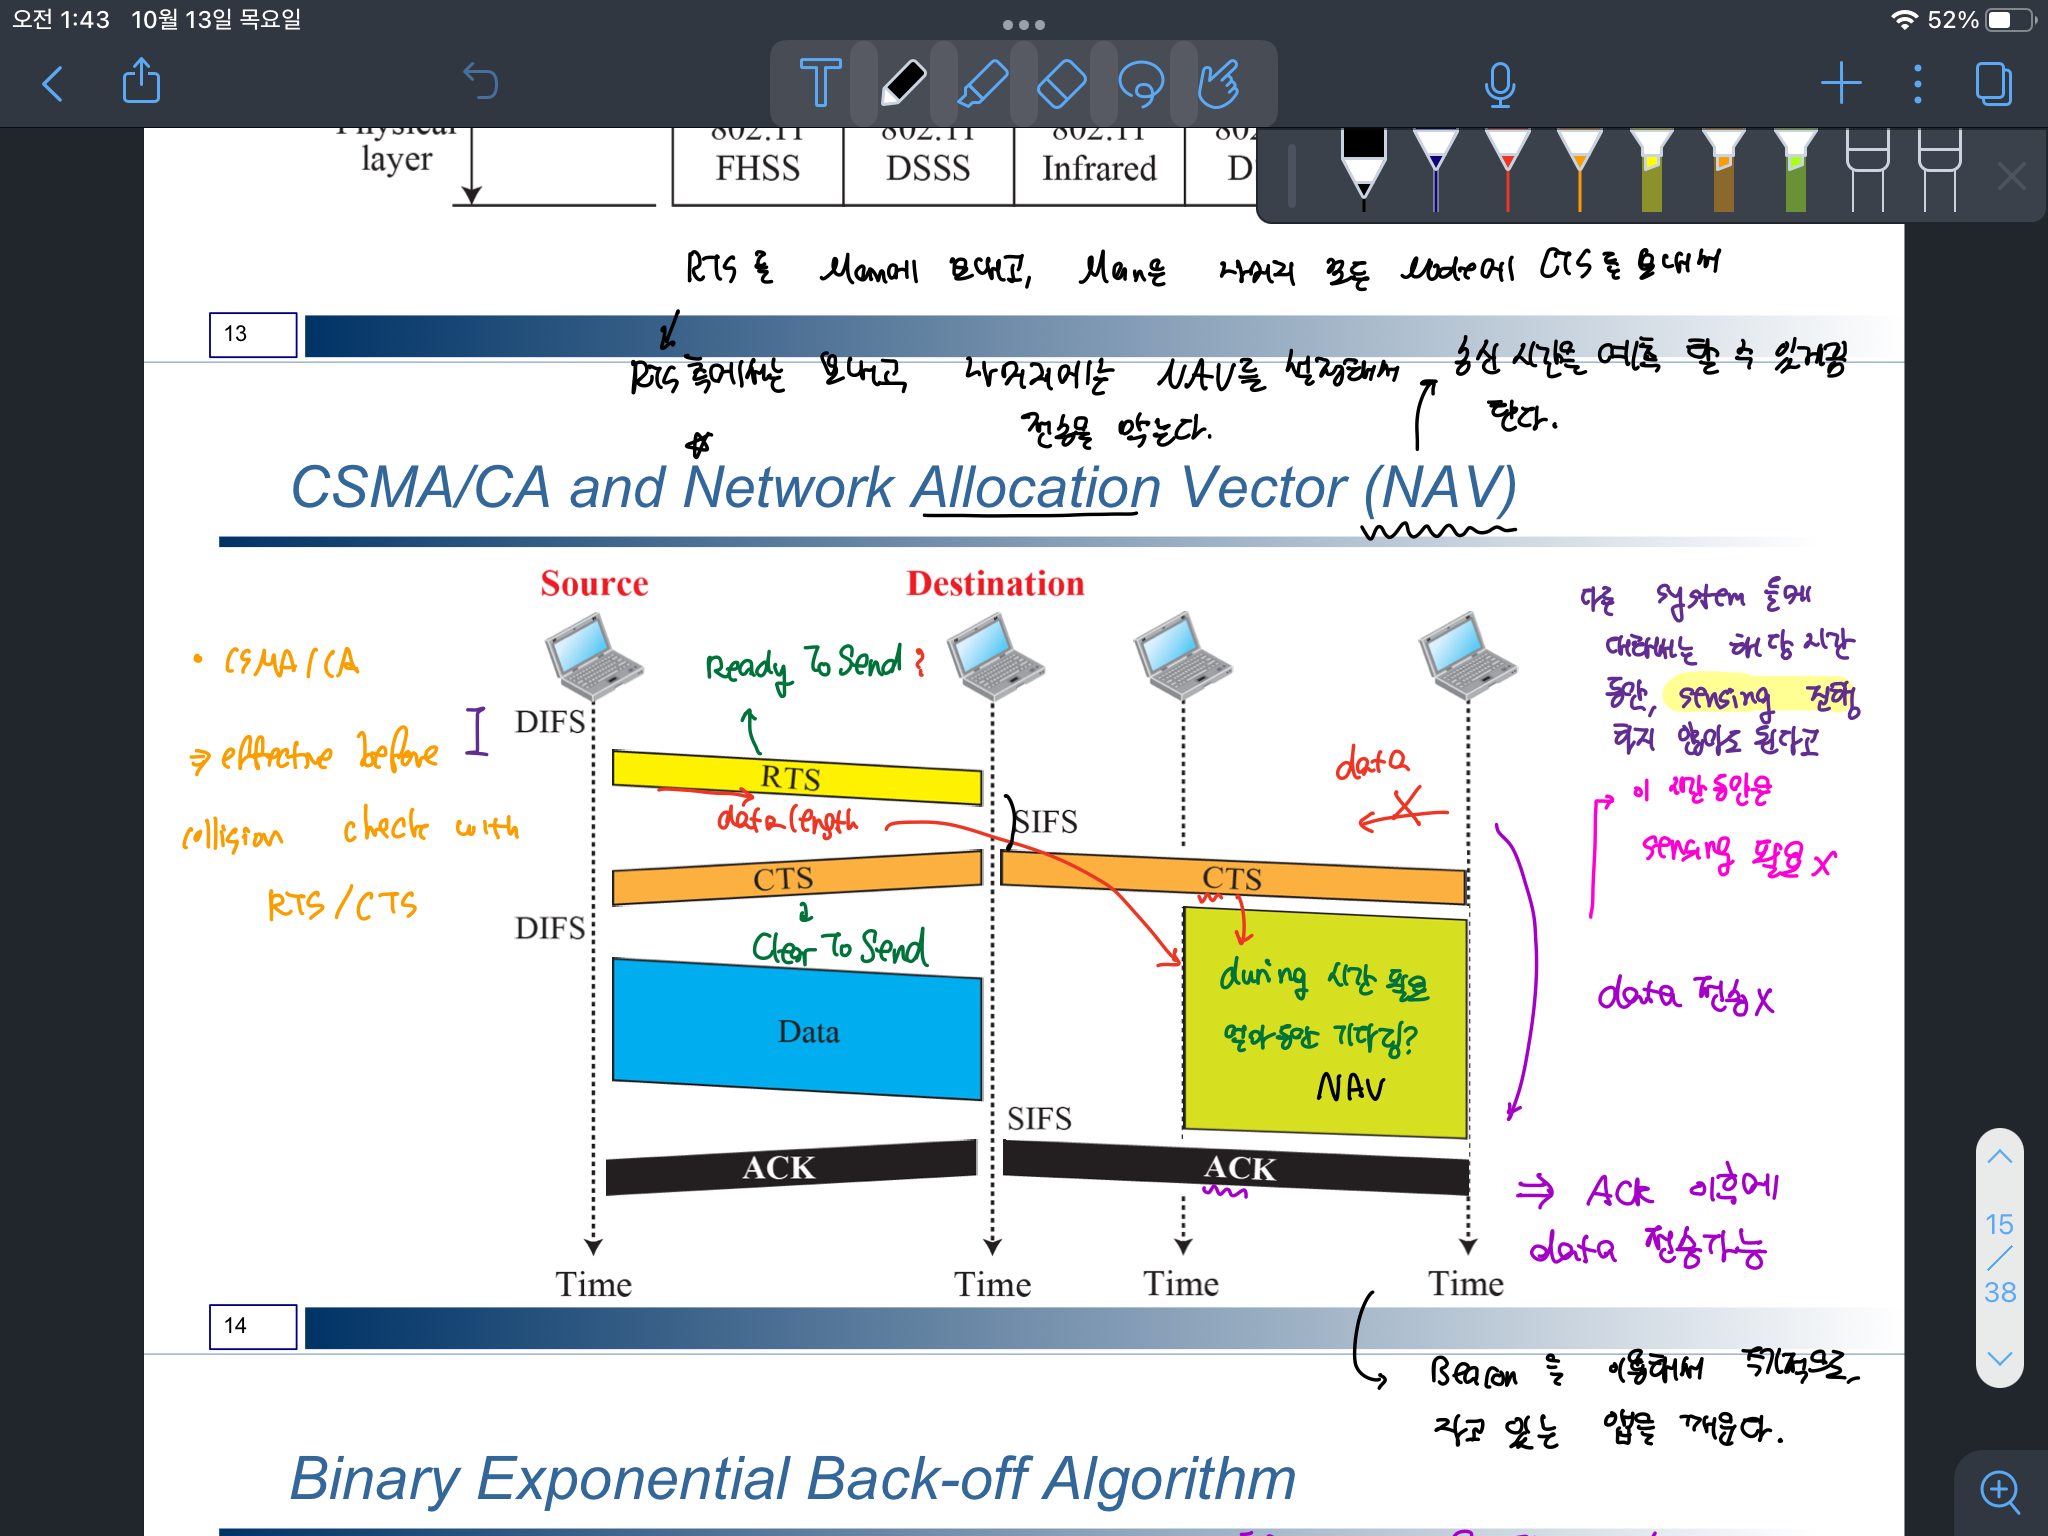 오전 1:43 10월 13일 목요일
52%
Physical
layer
802.11
FHSS
802.11
DSSS
802.11
Infrared
RTS를 Man에 보내고, Man은 나머지 모든 Node에 CTS를 보내서
13
RTS 측에서는 보내고 나머지에는 NAV를 설정해서
통신 시간을 예측 할 수 있게끔
한다.
전송을 막는다.
CSMA/CA and Network Allocation Vector (NAV)
Source
Destination
• CSMA/CA
⇒ effective before
collision check with
RTS/CTS
Ready To Send ?
DIFS
RTS
data length
SIFS
data
CTS
CTS
DIFS
Clear To Send
Data
during 시간 필요
얼마동안 기다림?
NAV
SIFS
ACK
ACK
Time
Time
Time
Time
다른 system 들에
대해서는 해당 시간
동안, sensing 진행
하지 않아도 된다고
이 시간동안은
sensing 필요 X
data 전송 X
⇒ ACK 이후에
data 전송가능
15
/
38
14
Beacon을 이용해서 주기적으로
자고 있는 앱을 깨운다.
Binary Exponential Back-off Algorithm